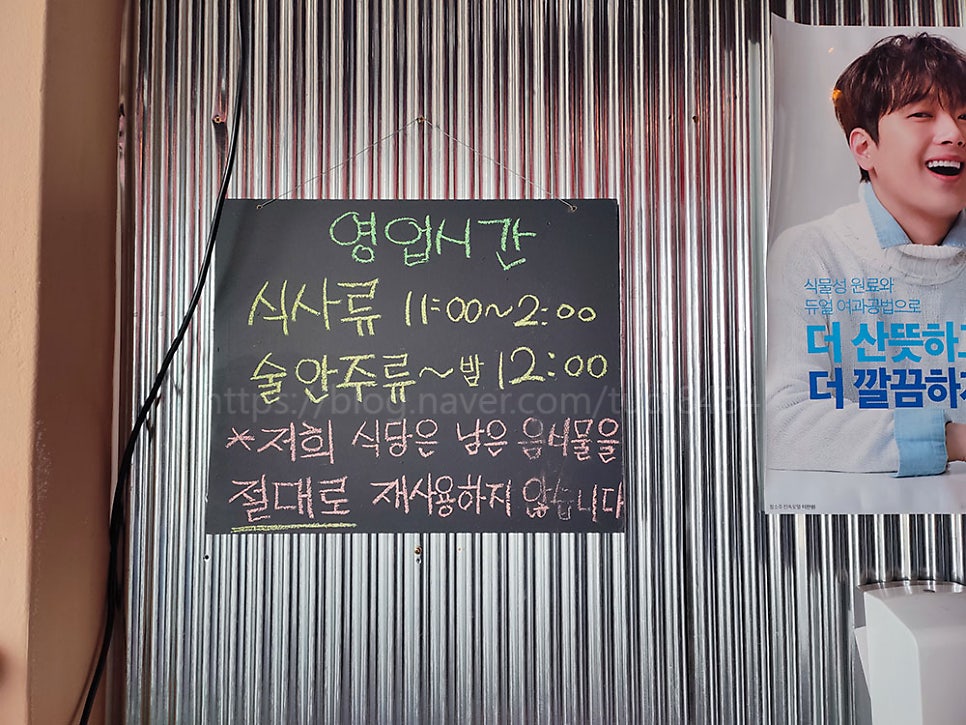 영업시간
식사류 11:00~2:00
술안주류~밤 12:00
*저희 식당은 남은 음식물을
절대로 재사용하지 않습니다
식물성 원료와
듀얼 여과공법으로
더 산뜻하고
더 깔끔하게